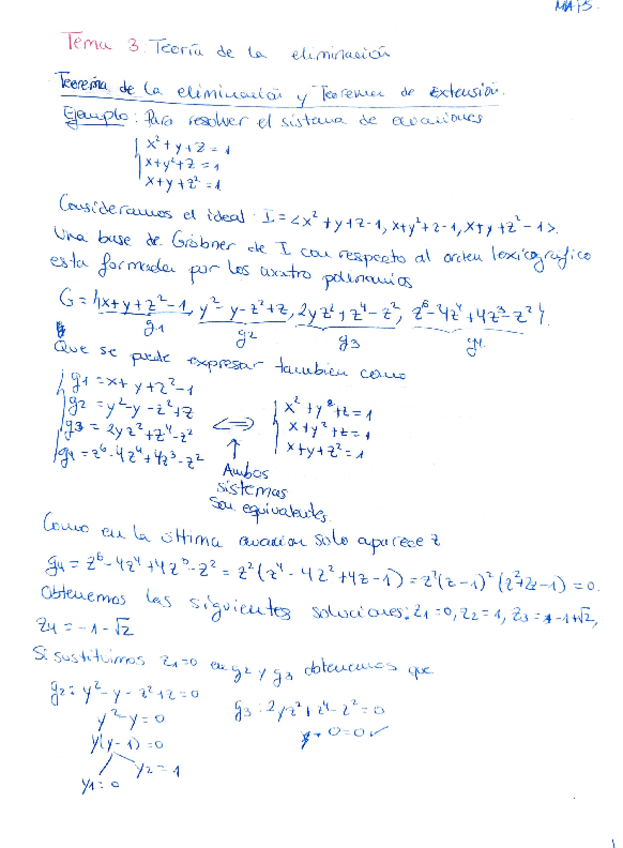 MA75
Tema 3. Teoría de la eliminación
Teorema de la eliminación y Teorema de Extensión.
Ejemplo: Para resolver el sistema de ecuaciones
x² + y + z = 1
x + y² + z = 1
x + y + z² = 1
Consideramos el ideal I = <x² + y + z - 1, x + y² + z - 1, x + y + z² - 1>.
Una base de Gröbner de I con respecto al orden lexicográfico
esta formada por los cuatro polinomios
G = {x + y + z² - 1, y² - y - z² + z, 2yz² + z⁴ - z², z⁶ - 4z⁴ + 4z³ - z²}.
g1 g2 g3 g4
Que se puede expresar tambien como
g1 = x + y + z² - 1
g2 = y² - y - z² + z
g3 = 2yz² + z⁴ - z²
g4 = z⁶ - 4z⁴ + 4z³ - z²
<=>
x² + y + z = 1
x + y² + z = 1
x + y + z² = 1
↑
Ambos
sistemas
son equivalentes.
Como en la última ecuacion solo aparece z
g4 = z⁶ - 4z⁴ + 4z³ - z² = z²(z⁴ - 4z² + 4z - 1) = z²(z - 1)²(z² + 2z - 1) = 0.
Obtenemos las siguientes soluciones: z1 = 0, z2 = 1, z3 = -1 + √2,
z4 = -1 - √2
Si sustituimos z1 = 0 en g2 y g3 obtenemos que
g2: y² - y - z² + z = 0
g3: 2yz² + z⁴ - z² = 0
y² - y = 0
0 = 0 ✓
y(y - 1) = 0
y2 = 1
y1 = 0
1